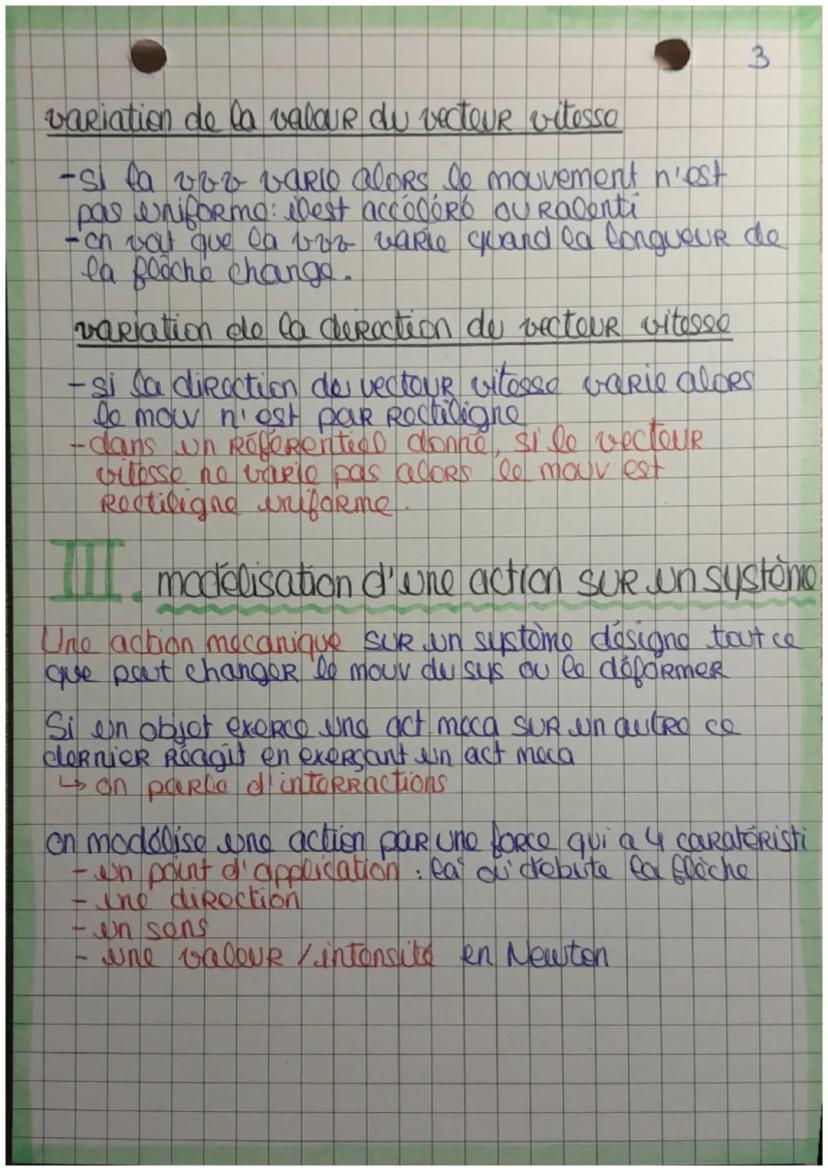 3
variation de la valeur du vecteur vitesse
-si la vvv varie alors le mouvement n'est
pas uniforme: il est accéléré ou ralenti
-on voit que la vvv varie quand la longueur de
la flèche change.
variation de la deraction du vecteur vitesse
-si la direction du vecteur vitesse varie alors
le mouv n'est par rectiligne
-dans un référentiel donné, si le vecteur
vitesse ne varie pas alors le mouv est
Rectiligne uniforme.
III. modélisation d'une action sur un système
Une action mecanique sur un système désigne tout ce
que peut changer le mouv du sys ou le déformer
Si un objet exerce une act meca sur un autre ce
dernier réagit en exerçant un act meca
↳ on parle d'interractions
on modélise une action par une force qui a 4 caratéristi
- un point d'application : la débute la flèche
- une direction
- un sens
- une valeur / intensité en Newton